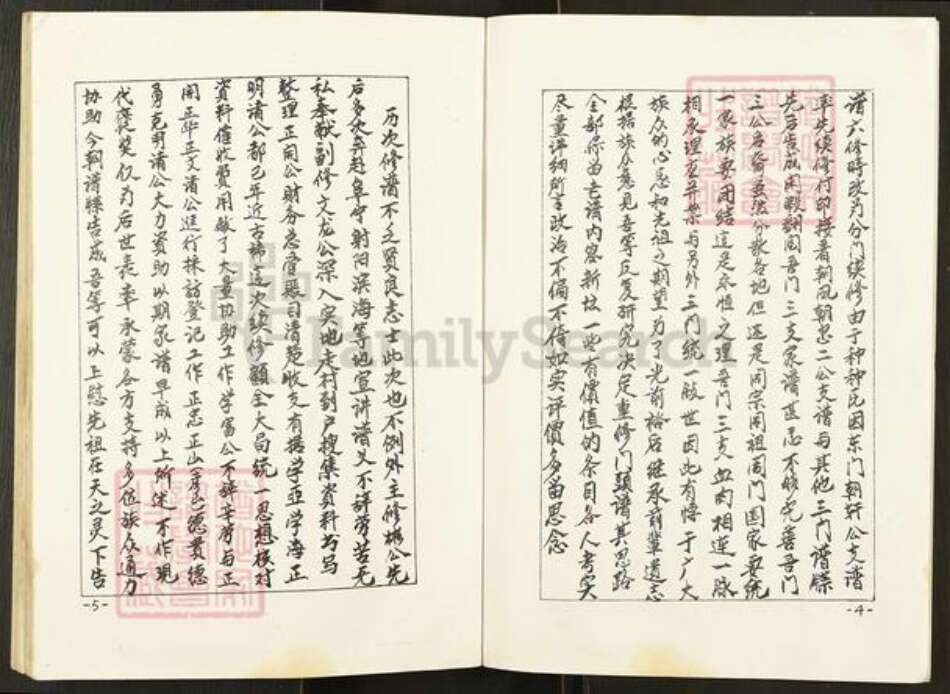 谱六修時改为分门续修由于种种原因东门朝轩公支谱
率先续修付印接着朝凤朝忠二公支谱与其他三门谱牒
先后告成闲暇翻阅吾门三支家谱甚感不能完善吾门
三公各脊虽然分散各地但还是同宗同祖同门国家要统
一家族要团结這是永恒之理吾门三支血肉相連一脉
相承理应并業与另外三门统一股世因此有悖于广大
族众的心愿和先祖之期望为了光前裕后继承前輩遗志
根据族众意见吾等反复研究决定重修门類谱其思路
全部保留老谱内容新坛一些有價值的条目各人考实
尽量详细所言政治不偏不倚如实评價多留思念
-4-
历次修谱不乏贤良志士此次也不例外主修楼公先
后多次奔赴阜宁射阳滨海等地宣讲谱义不辞劳苦无
私奉献副修文龙公深入实地走村到户搜集資料书写
整理正闲公财务总管账目清楚收支有据学亚学海正
明诸公都已年近古稀這次续修顧全大局统一思想核对
資料催收費用做了大量协助工作学富公不辞辛劳与正
開正华正文诸公進行採訪登记工作正忠正山彦邑德贵德
勇克明诸公大力資助以期家谱早成以上所述不作現
代褒奖仅为后世表率承蒙各方支持多位族众通力
协助今朝谱牒告成吾等可以上慰先祖在天之灵下告
-5-
FamilySearch